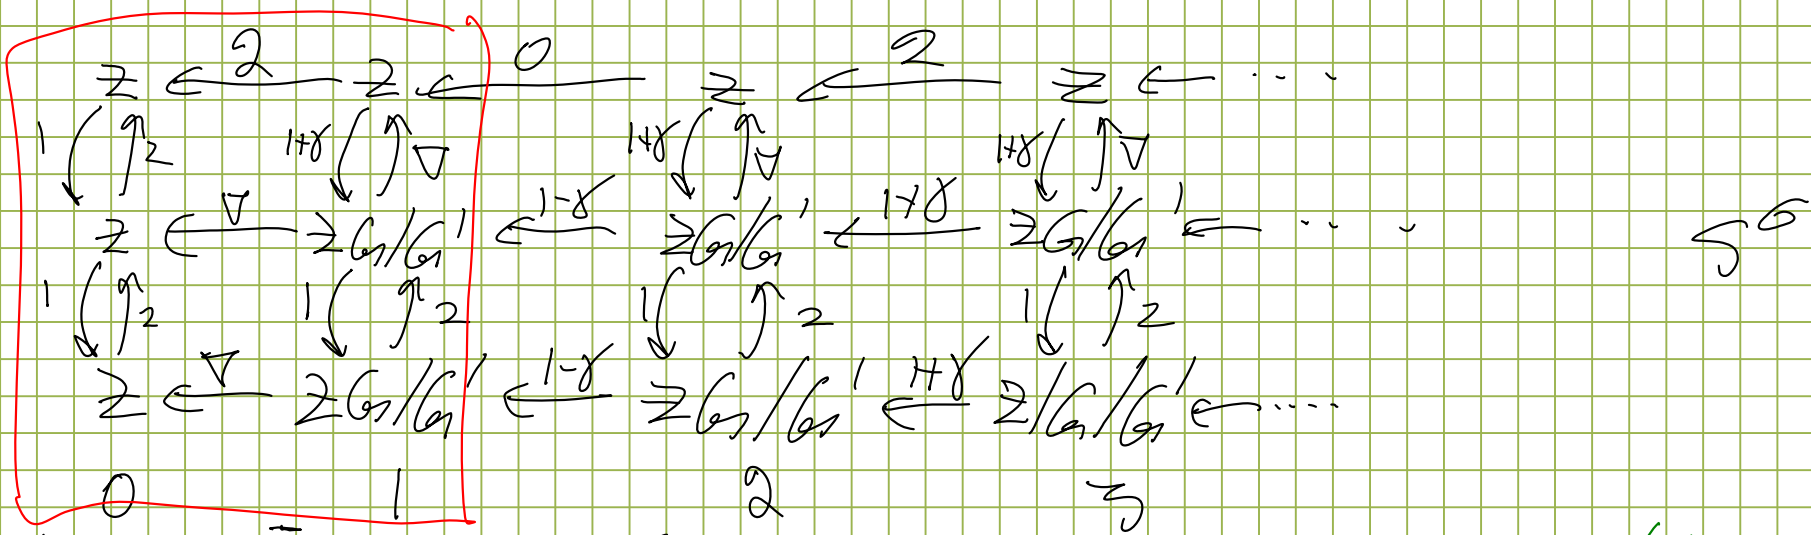 ℤ ← 2 ℤ ← 0 ℤ ← 2 ℤ ← ⋯
1 2 1+γ ∇ 1+γ ∇ 1+γ ∇
ℤ ← ∇ ℤG/G' ← 1-γ ℤG/G' ← 1+γ ℤG/G' ← ⋯
1 2 1 2 1 2 1 2
ℤ ← ∇ ℤG/G' ← 1-γ ℤG/G' ← 1+γ ℤ/G/G' ← ⋯
0 1 2 3